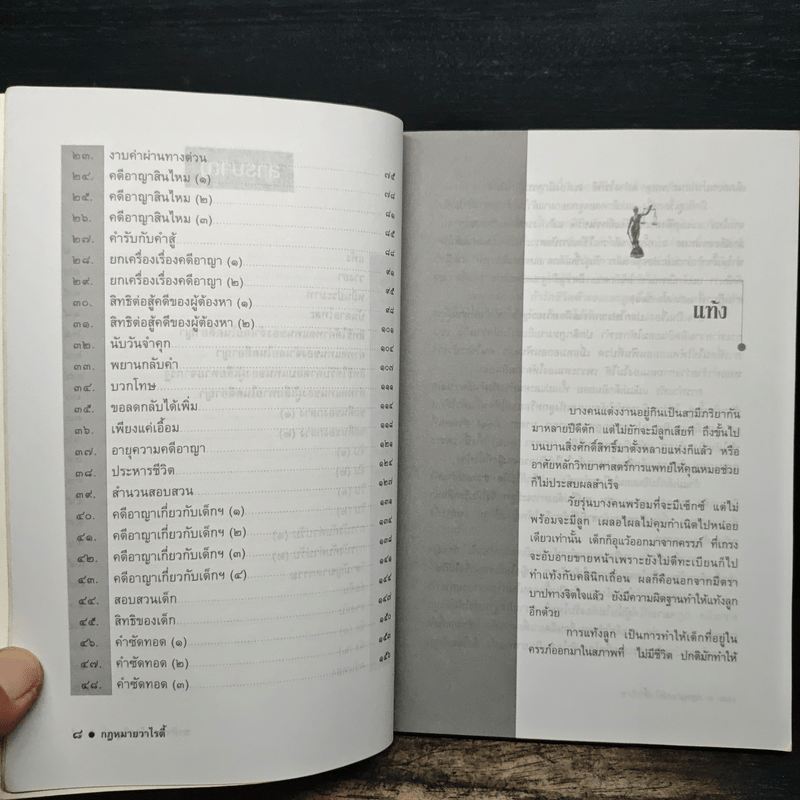 ๒๓. งาบค่าผ่านทางด่วน ๗๕
๒๔. คดีอาญาสินไหม (๑) ๗๘
๒๕. คดีอาญาสินไหม (๒) ๘๑
๒๖. คดีอาญาสินไหม (๓) ๘๕
๒๗. คำรับกับคำสู้ ๘๘
๒๘. ยกเครื่องเรื่องคดีอาญา (๑) ๙๑
๒๙. ยกเครื่องเรื่องคดีอาญา (๒) ๙๕
๓๐. สิทธิต่อสู้คดีของผู้ต้องหา (๑) ๙๘
๓๑. สิทธิต่อสู้คดีของผู้ต้องหา (๒) ๑๐๑
๓๒. นับวันจำคุก ๑๐๔
๓๓. พยานกลับคำ ๑๐๗
๓๔. บวกโทษ ๑๑๑
๓๕. ขอลดกลับได้เพิ่ม ๑๑๔
๓๖. เพียงแค่เอื้อม ๑๑๘
๓๗. อายุความคดีอาญา ๑๒๑
๓๘. ประหารชีวิต ๑๒๔
๓๙. สำนวนสอบสวน ๑๒๗
๔๐. คดีอาญาเกี่ยวกับเด็กฯ (๑) ๑๓๑
๔๑. คดีอาญาเกี่ยวกับเด็กฯ (๒) ๑๓๔
๔๒. คดีอาญาเกี่ยวกับเด็กฯ (๓)
๔๓. คดีอาญาเกี่ยวกับเด็กฯ (๔)
๔๔. สอบสวนเด็ก
๔๕. สิทธิของเด็ก ๑๕๐
๔๖. คำซัดทอด (๑) ๑๕๓
๔๗. คำซัดทอด (๒) ๑๕๖
๔๘. คำซัดทอด (๓)
๘ ● กฎหมายวาไรตี้
แท้ง
บางคนแต่งงานอยู่กินเป็นสามีภริยากัน
มาหลายปีดีดัก แต่ไม่ยักจะมีลูกเสียที ถึงขั้นไป
บนบานสิ่งศักดิ์สิทธิ์มาตั้งหลายแห่งก็แล้ว หรือ
อาศัยหลักวิทยาศาสตร์การแพทย์ให้คุณหมอช่วย
ก็ไม่ประสบผลสำเร็จ
วัยรุ่นบางคนพร้อมที่จะมีเซ็กซ์ แต่ไม่
พร้อมจะมีลูก เผลอไผลไม่คุมกำเนิดไปหน่อย
เดียวเท่านั้น เด็กก็อุแว้ออกมาจากครรภ์ ที่เกรง
จะอับอายขายหน้าเพราะยังไม่ตีทะเบียนก็ไป
ทำแท้งกับคลินิกเถื่อน ผลก็คือนอกจากมีตรา
บาปทางจิตใจแล้ว ยังมีความผิดฐานทำให้แท้งลูก
อีกด้วย
การแท้งลูก เป็นการทำให้เด็กที่อยู่ใน
ครรภ์ออกมาในสภาพที่ ไม่มีชีวิต ปกติมักทำให้